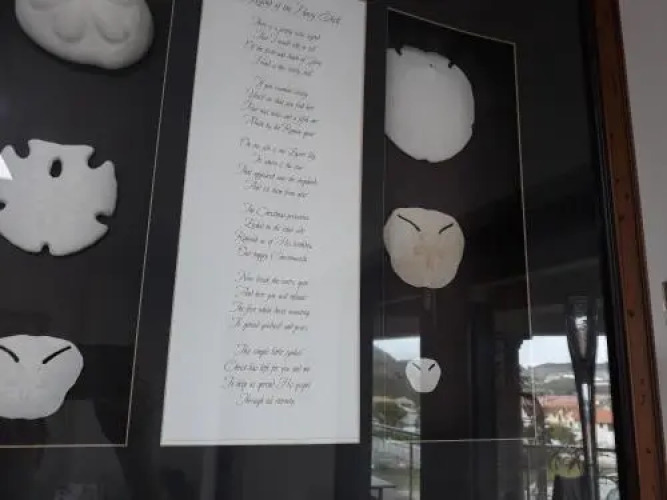 Legend of the Pansy Shell
There is a pansy
That I would like to tell
Of the birth and death of Jesus
Found in this lovely shell
If you examine closely
You'll see that you find here
Four nail holes and a fifth one
Made by the Roman spear
On one side is the Easter lily
Its centre is the star
That appeared unto the shepherds
And led them from afar
The Christmas poinsettia
Etched on the other side
Reminds us of His birthday
Our happy Christmastide
Now break the centre open
And here you will release
The five white doves awaiting
To spread goodwill and peace
This simple little symbol
Christ has left for you and me
To help us spread His gospel
Through all eternity